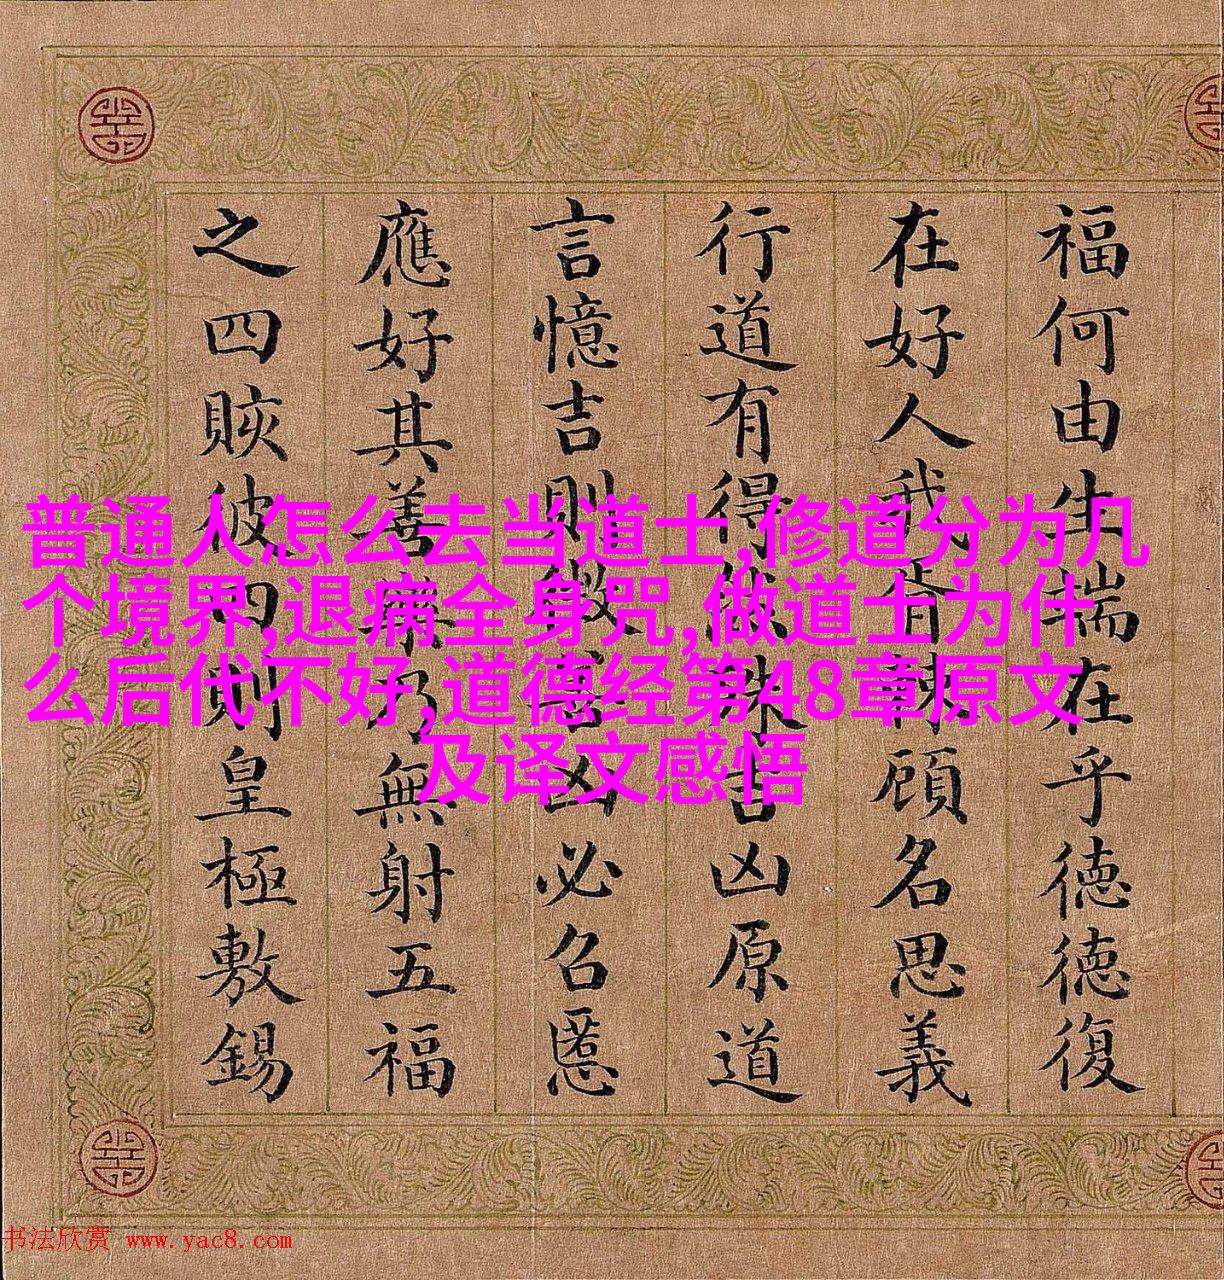 福何由生端在乎徳徳復
在好人我顧名思義
行道有得殊吉凶原道
言憶吉則凶必名慝
應好其善乃無射五福
之四賅彼四則皇極敷錫
普通人怎么去当道士,修道分为几
个境界,退病全身咒,做道士为什
么后代不好,道德经第48章原文
及译文感悟
书法欣赏 www.yac8.com